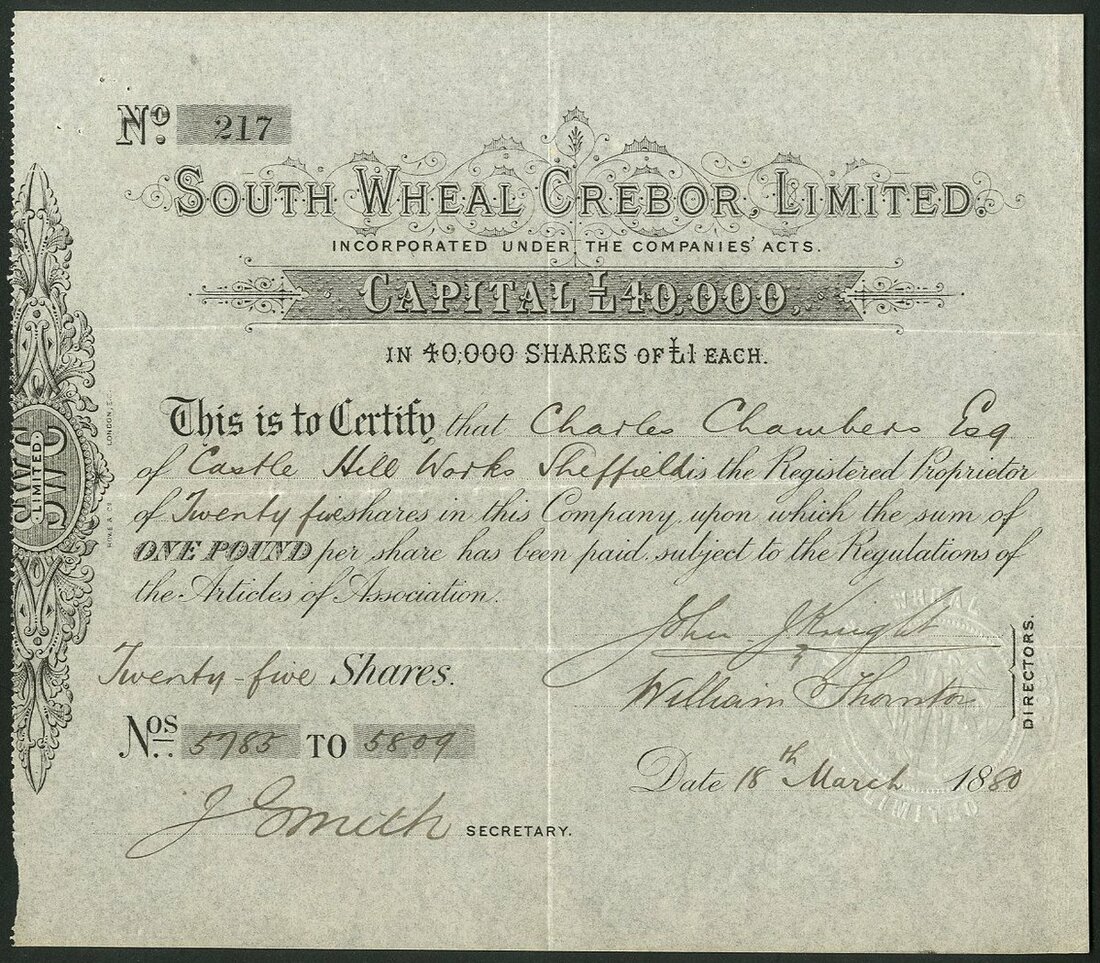 No. 217
SOUTH WHEAL CREBOR, LIMITED.
INCORPORATED UNDER THE COMPANIES' ACTS.
CAPITAL £40,000,
IN 40,000 SHARES OF £1 EACH.
This is to Certify that Charles Chambers Esq
of Castle Hill Works Sheffield is the Registered Proprietor
of Twenty five shares in this Company upon which the sum of
ONE POUND per share has been paid subject to the Regulations of
the Articles of Association.
John J Knight
Twenty-five Shares.
William Thornton
DIRECTORS.
Nos. 5785 TO 5809
Date 18th March 1880
J Smith SECRETARY.
SWC
LIMITED
LONDON, E.
WHEAL
LIMITED